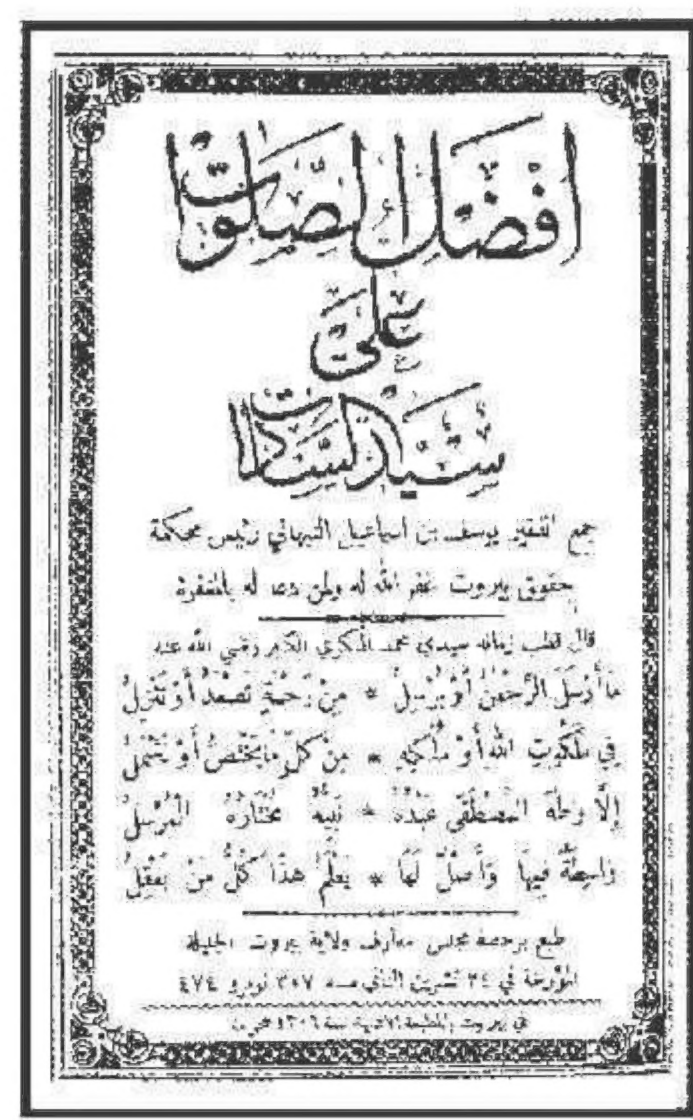 افضل الصلوات
على
سيد السادات
جمع الفقير يوسف بن اسماعيل النبهاني رئيس محكمة
حقوق بيروت غفر الله له ولمن دعا له بالمغفرة
قال قطب زمانه سيدي محمد البكري الكبير رضي الله عنه
مَا أَرْسَلَ الرَّحْمٰنُ أَوْ يُرْسِلُ * مِنْ رَحْمَةٍ تَصْعَدُ أَوْ تَنْزِلُ
فِي مَلَكُوتِ اللهِ أَوْ مُلْكِهِ * مِنْ كُلِّ مَا يَخْتَصُّ أَوْ يَشْمَلُ
إِلَّا وَطٰهَ المُصْطَفَى عَبْدُهُ * نَبِيُّهُ مُخْتَارُهُ الْمُرْسَلُ
وَاسِطَةٌ فِيهَا وَأَصْلٌ لَهَا * يَعْلَمُ هٰذَا كُلُّ مَنْ يَعْقِلُ
طبع برخصة مجلس معارف ولاية بيروت الجليلة
المؤرخة في ٢٤ تشرين الثاني سنة ٣٠٧ نومرو ٤٧٤
في بيروت بالمطبعة الادبية سنة ١٣٠٩